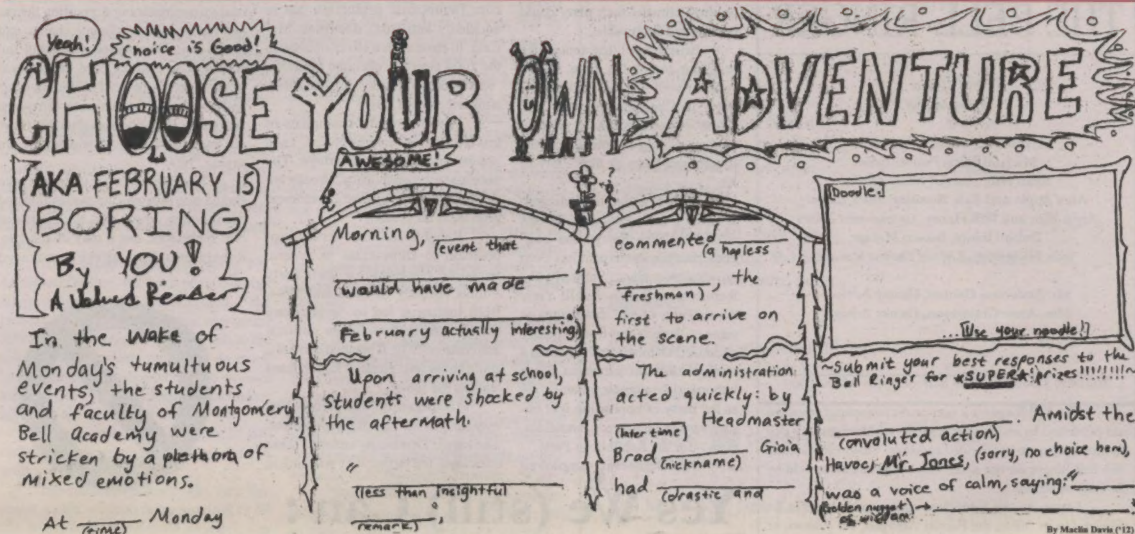 Yeah!
Choice is Good!
CHOOSE YOUR OWN ADVENTURE
AWESOME!
AKA FEBRUARY IS
BORING
By YOU!
A Valued Reader
In the wake of
Monday's tumultuous
events, the students
and faculty of Montgomery
Bell Academy were
stricken by a plethora of
mixed emotions.
At ____ Monday
(time)
Morning, ____
(event that
____
(would have made
____
February actually interesting).
Upon arriving at school,
students were shocked by
the aftermath.
"____
(less than insightful
____,
remark)
commented ____
(a hapless
____, the
freshman)
first to arrive on
the scene.
The administration
acted quickly: by
____ Headmaster
(later time)
Brad ____ Gioia
(nickname)
had ____
(drastic and
[Doodle:]
...[Use your noodle!]
~Submit your best responses to the
Bell Ringer for *SUPER*! prizes!!!!!!!!~
____. Amidst the
(convoluted action)
Havoc, Mr. Jones, (sorry, no choice here),
was a voice of calm, saying: "____
(Golden nugget → ____
of wisdom)
By Maclin Davis ('12)